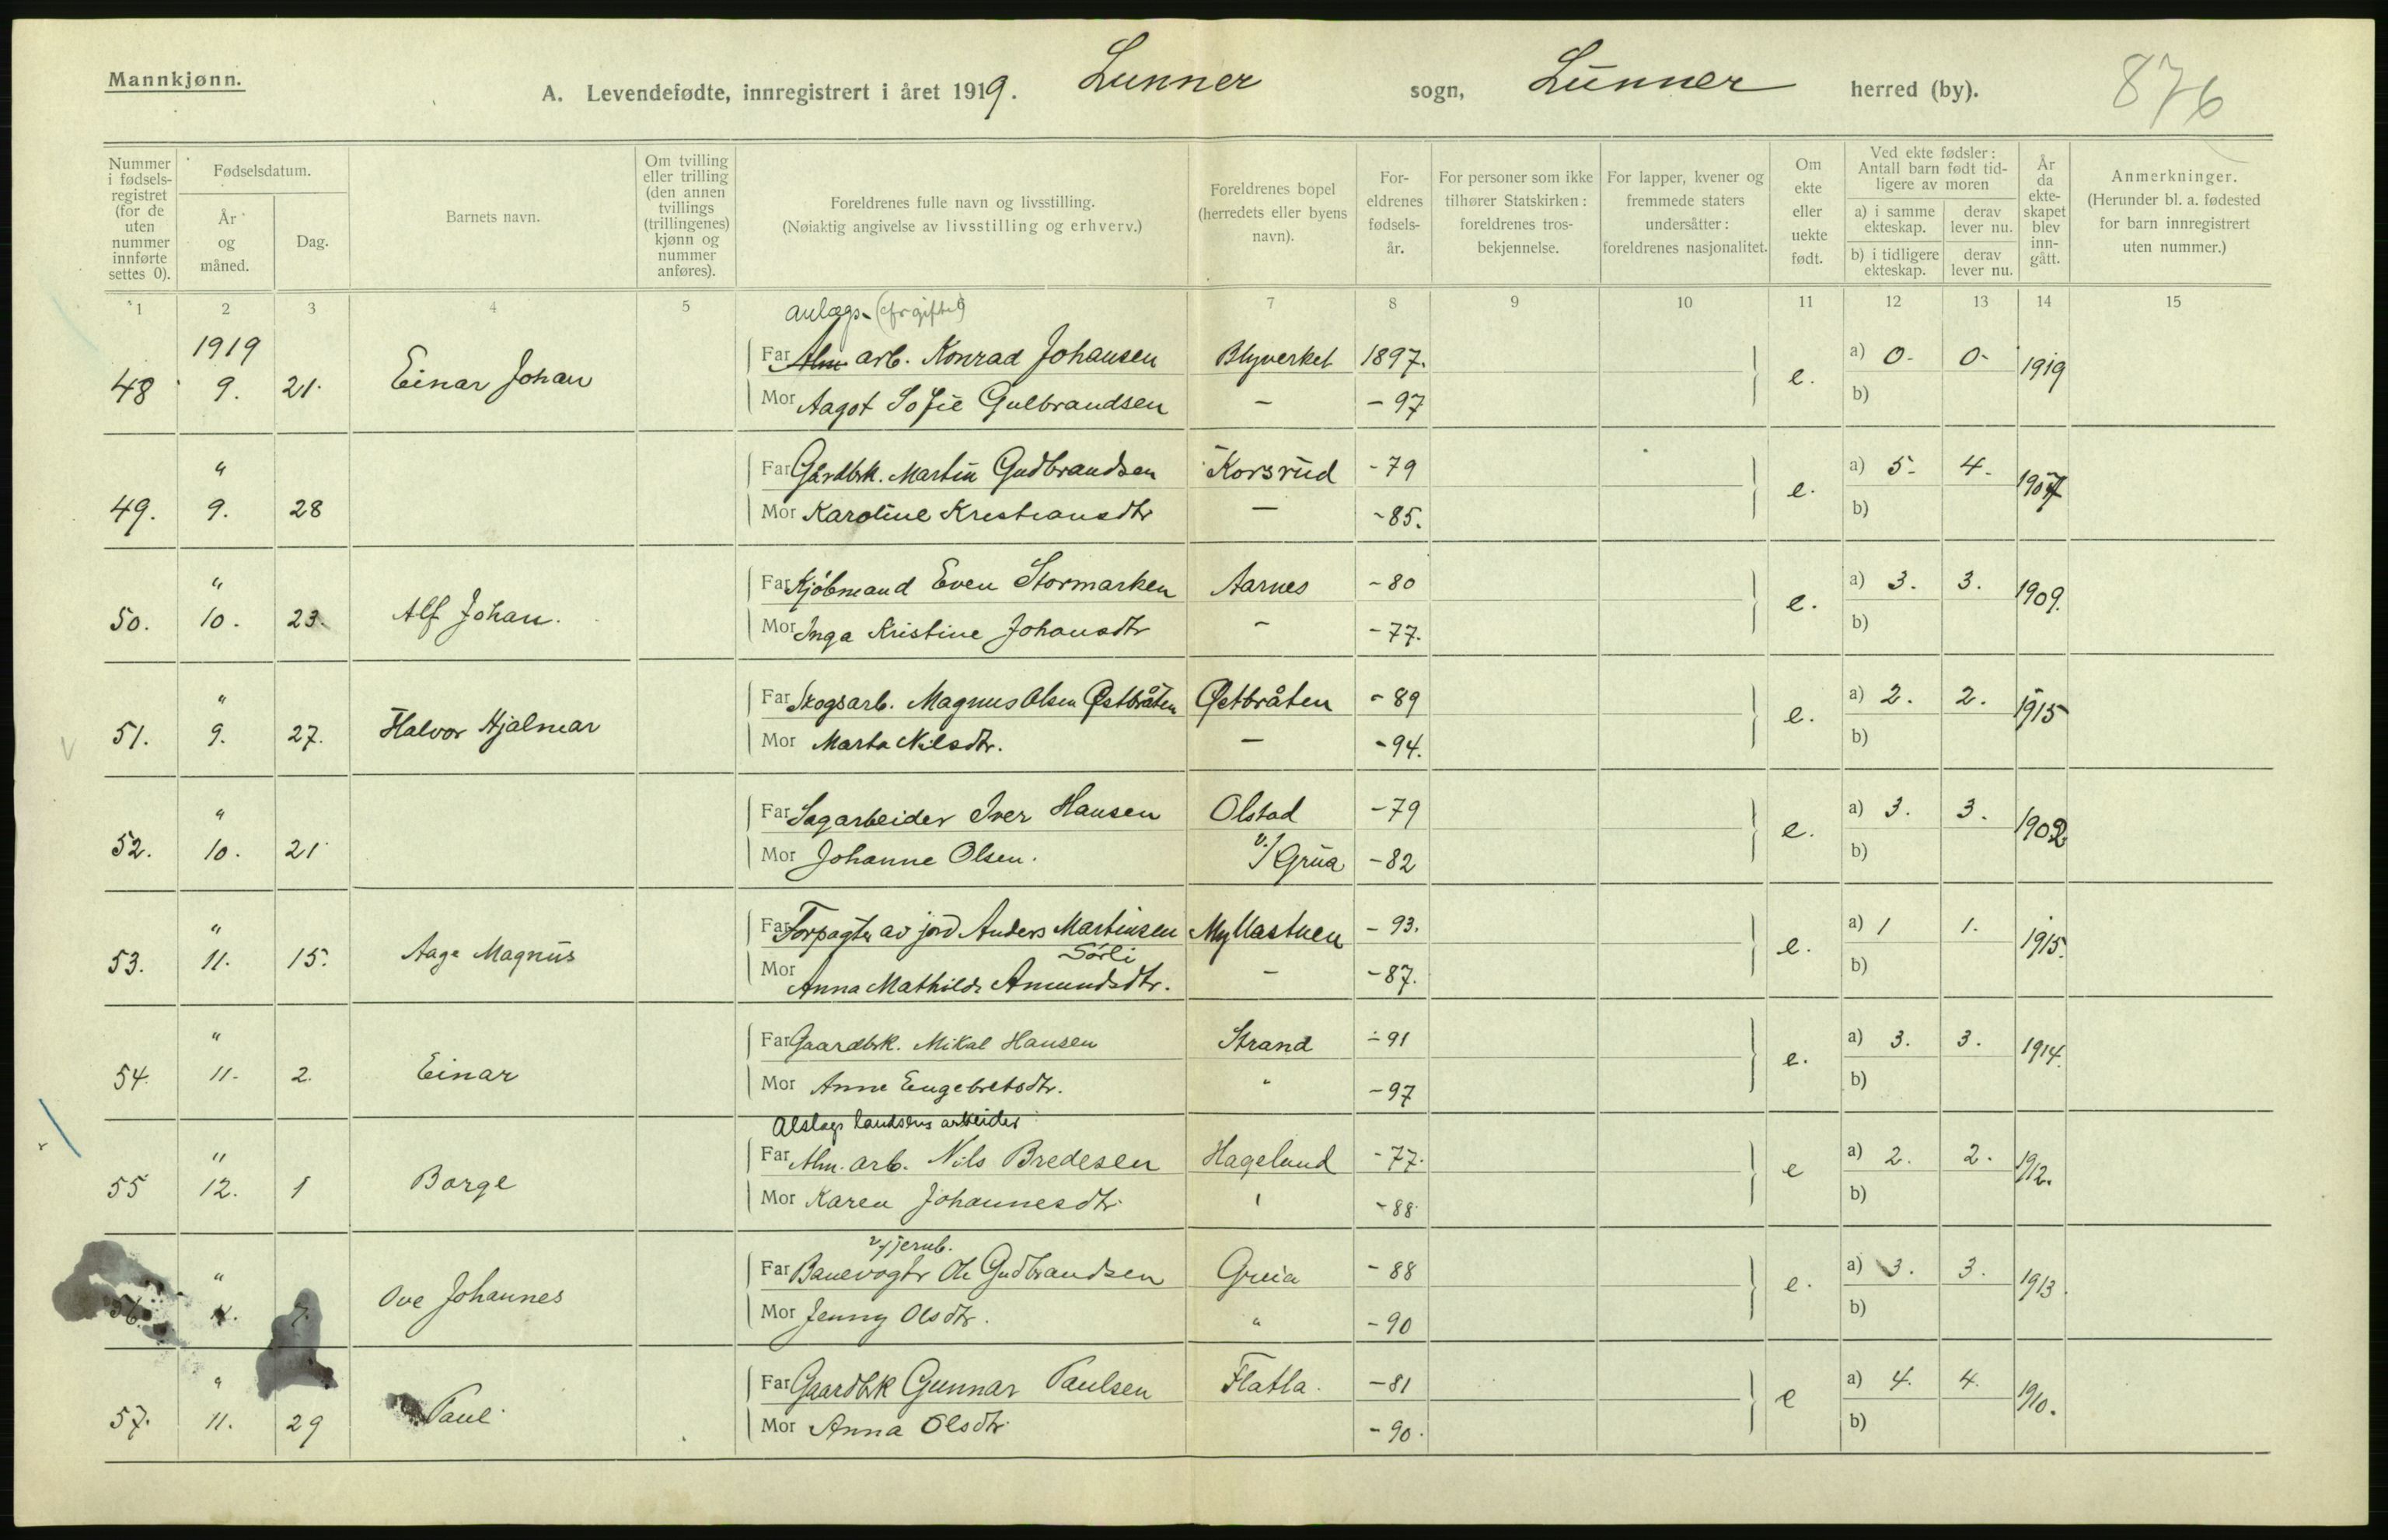 Mannkjønn.
A. Levendefødte, innregistrert i året 1919. Lunner sogn, Lunner herred (by). 876
Nummer i fødselsregistret (for de uten nummer innførte settes 0).
Fødselsdatum.
År og måned.
Dag.
Barnets navn.
Om tvilling eller trilling (den annen tvillings (trillingenes) kjønn og nummer anføres).
Foreldrenes fulle navn og livsstilling.
(Nøiaktig angivelse av livsstilling og erhverv.)
Foreldrenes bopel (herredets eller byens navn).
Foreldrenes fødselsår.
For personer som ikke tilhører Statskirken: foreldrenes trosbekjennelse.
For lapper, kvener og fremmede staters undersåtter: foreldrenes nasjonalitet.
Om ekte eller uekte født.
Ved ekte fødsler: Antall barn født tidligere av moren
a) i samme ekteskap.
derav lever nu.
b) i tidligere ekteskap.
derav lever nu.
År da ekteskapet blev inngått.
Anmerkninger.
(Herunder bl. a. fødested for barn innregistrert uten nummer.)
1 2 3 4 5 7 8 9 10 11 12 13 14 15
anlægs-
1919
Far Alm arb. Konrad Johansen Blyverket 1897. a) 0- 0-
48 9. 21. Einar Johan e. 1919
Mor Aagot Sofie Gulbrandsen — -97 b)
" Far Gårdbrk. Martin Gudbrandsen Korsrud -79 a) 5- 4-
49. 9. 28 e. 1907
Mor Karoline Kristiansdtr — -85. b)
" Far Kjöbmand Even Stormarken Aarnes -80 a) 3. 3.
50. 10. 23. Alf Johan. e. 1909.
Mor Inga Kristine Johansdtr - -77. b)
" Far Skogsarb. Magnus Olsen Østbråten Østbråten -89 a) 2. 2.
51. 9. 27. Halvor Hjalmar e. 1915
Mor Marta Nilsdtr. — -94. b)
" Far Sagarbeider Iver Hansen Olstad -79 a) 3. 3.
52. 10. 21 e. 1902
Mor Johanne Olsen. v./Grua -82 b)
" Far Forpagter av jord Anders Martinsen Myllastuen -93. a) 1 1.
Sörli
53. 11. 15. Aage Magnus e. 1915.
Mor Anna Mathilde Amundsdtr. - -87. b)
" Far Gaardbrk. Mikal Hansen Strand -91 a) 3. 3.
54. 11. 2. Einar e. 1914.
Mor Anne Engebretsdtr. " -97 b)
arbeider
" Far Alm. arb. Nils Bredesen Hagelund -77. a) 2. 2.
55 12. 1 Borge e 1912.
Mor Karen Johannesdtr " -88 b)
v/jernb.
" Far Banevogtr Ole Gudbrandsen Grua -88 a) 3. 3.
56. 7. Ove Johannes e. 1913.
Mor Jenny Olsdtr. " -90 b)
" Far Gaardbrk Gunnar Paulsen Flatla. -81 a) 4. 4.
57. 11. 29 Paul e 1910.
Mor Anna Olsdtr -90. b)